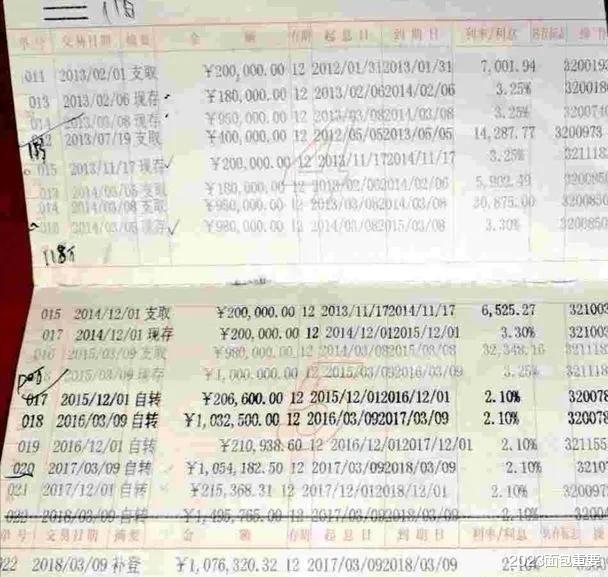 118
单号 交易日期 摘要 金 额 存期 起息日 到期日 利率/利息 操作
011 2013/02/01 支取 ¥200,000.00 12 2012/01/31 2013/01/31 7,001.94 3200193
013 2013/02/06 现存 ¥180,000.00 12 2013/02/06 2014/02/06 3.25% 3200180
014 2013/03/08 现存 ¥950,000.00 12 2013/03/08 2014/03/08 3.25% 3200740
012 2013/07/19 支取 ¥400,000.00 12 2012/05/05 2013/05/05 14,287.77 3200973
015 2013/11/17 现存 ¥200,000.00 12 2013/11/17 2014/11/17 3.25% 321118
013 2014/03/08 支取 ¥180,000.00 12 2013/02/06 2014/02/06 3200850
014 2014/03/08 支取 ¥950,000.00 12 2013/03/08 2014/03/08 30,875.00 3200850
016 2014/03/08 现存 ¥980,000.00 12 2014/03/08 2015/03/08 3.30% 320085
118万
015 2014/12/01 支取 ¥200,000.00 12 2013/11/17 2014/11/17 6,525.27 321003
017 2014/12/01 现存 ¥200,000.00 12 2014/12/01 2015/12/01 3.30% 321003
016 2015/03/09 支取 ¥980,000.00 12 2014/03/08 2015/03/08 32,348.16 321118
2015/03/09 现存 ¥1,000,000.00 12 2015/03/09 2016/03/09 3.25% 321118
017 2015/12/01 自转 ¥206,600.00 12 2015/12/01 2016/12/01 2.10% 320078
018 2016/03/09 自转 ¥1,032,500.00 12 2016/03/09 2017/03/09 2.10% 320078
019 2016/12/01 自转 ¥210,938.60 12 2016/12/01 2017/12/01 2.10% 321155
020 2017/03/09 自转 ¥1,054,182.50 12 2017/03/09 2018/03/09 2.10% 32107
021 2017/12/01 自转 ¥215,368.31 12 2017/12/01 2018/12/01 2.10% 3200972
022 2018/03/09 自转 12 2.10% 32009
单号 交易日期 摘要 金 额 存期 起息日 到期日 利率/利息
022 2018/03/09 补登 ¥1,076,320.32 12 2017/03/09 2018/03/09 2.10%
2023面包重要